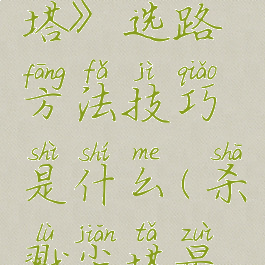 塔》选路
fāng fǎ jì qiǎo
方法技巧
shì shí me shā
是什么(杀
lù jiān tǎ zuì
戮尖塔最